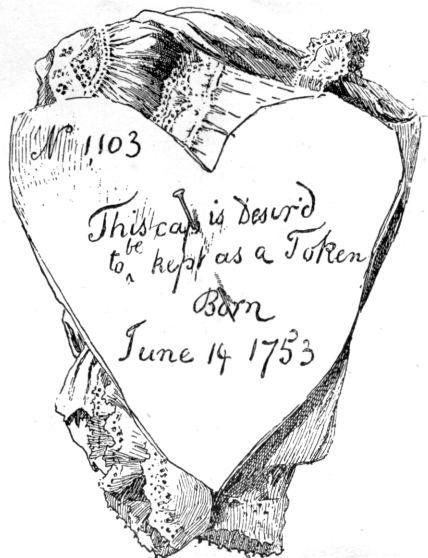 No 1,103
This cap is Desir'd
to be kept as a Token
Born
June 14 1753